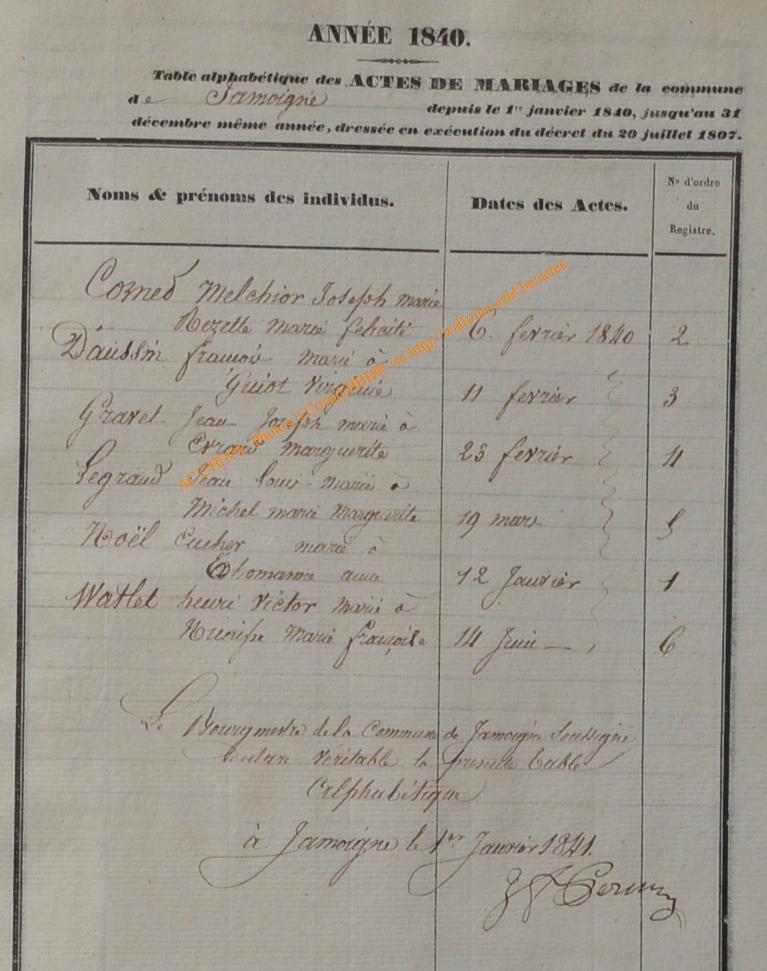 ANNÉE 1840.
Table alphabétique des ACTES DE MARIAGES de la commune
de Jamoigne depuis le 1er janvier 1840, jusqu'au 31
décembre même année, dressée en exécution du décret du 20 juillet 1807.
Noms & prénoms des individus. Dates des Actes. No d'ordre du Registre.
Melchior Joseph marié
à Rezette marie félicité 6. fevrier 1840 2
Daussin françois marié à
Guiot Virginie 11 fevrier 3
Gravet Jean Joseph marié à
Evrard Marguerite 25 fevrier 4
Legrand Jean Louis marié à
Michel marie Marguerite 19 mars 5
Noël marié à
Thomanne 12 Janvier 1
Watlet henri Victor marié à
Marie françoise 14 Juin 6
Le Bourgmestre de la Commune de Jamoigne Soussigné
Déclare Véritable la présente table
Alphabétique
à Jamoigne le 1er Janvier 1841.
via http://wallonia.asbl.be/actes